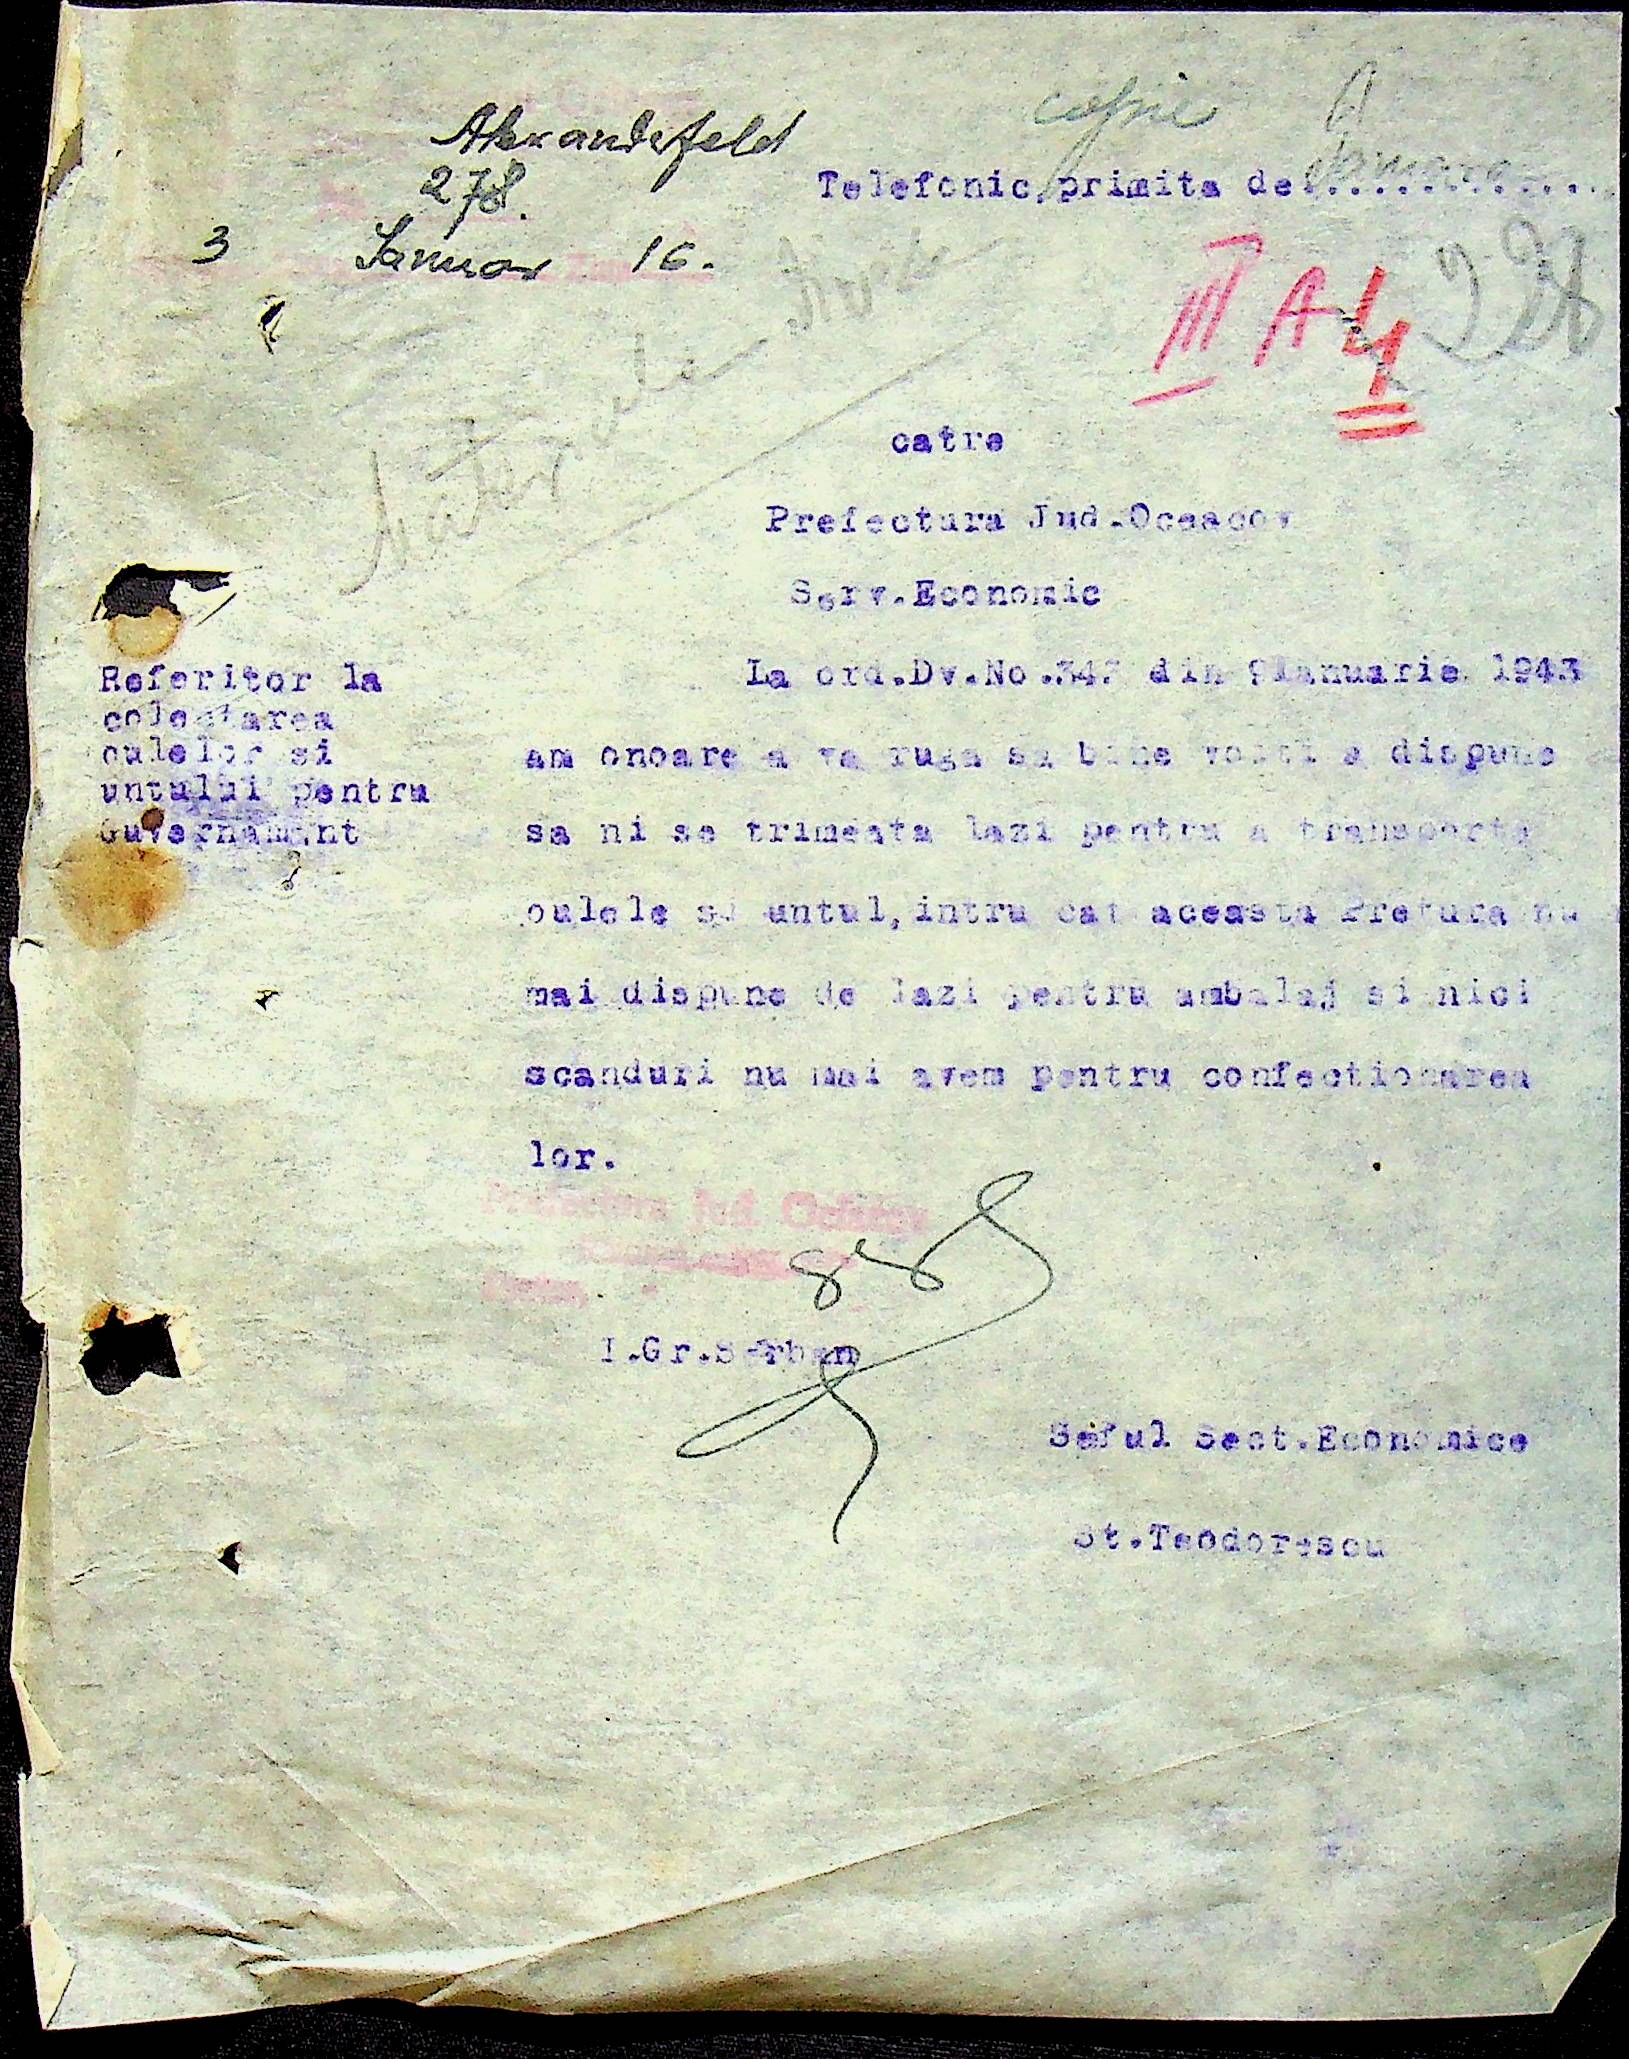 copie
Alexanderfeld
278.
3 Januar 16.
Telefonic primita de..............
III A 4
catre
Prefectura Jud.Oceacov
Serv.Economic
Referitor la
colectarea
oulelor si
untului pentru
Guvernamant
La ord.Dv.No.343 din 9Ianuarie 1943
am onoare a va ruga sa bine voiti a dispune
sa ni se trimeata lazi pentru a transporta
oulele si untul,intru cat aceasta Pretura nu
mai dispune de lazi pentru ambalaj si nici
scanduri nu mai avem pentru confectionarea
lor.
Prefectura Jud. Oceacov
I.Gr.Serban
Seful Sect.Economice
St.Teodorescu